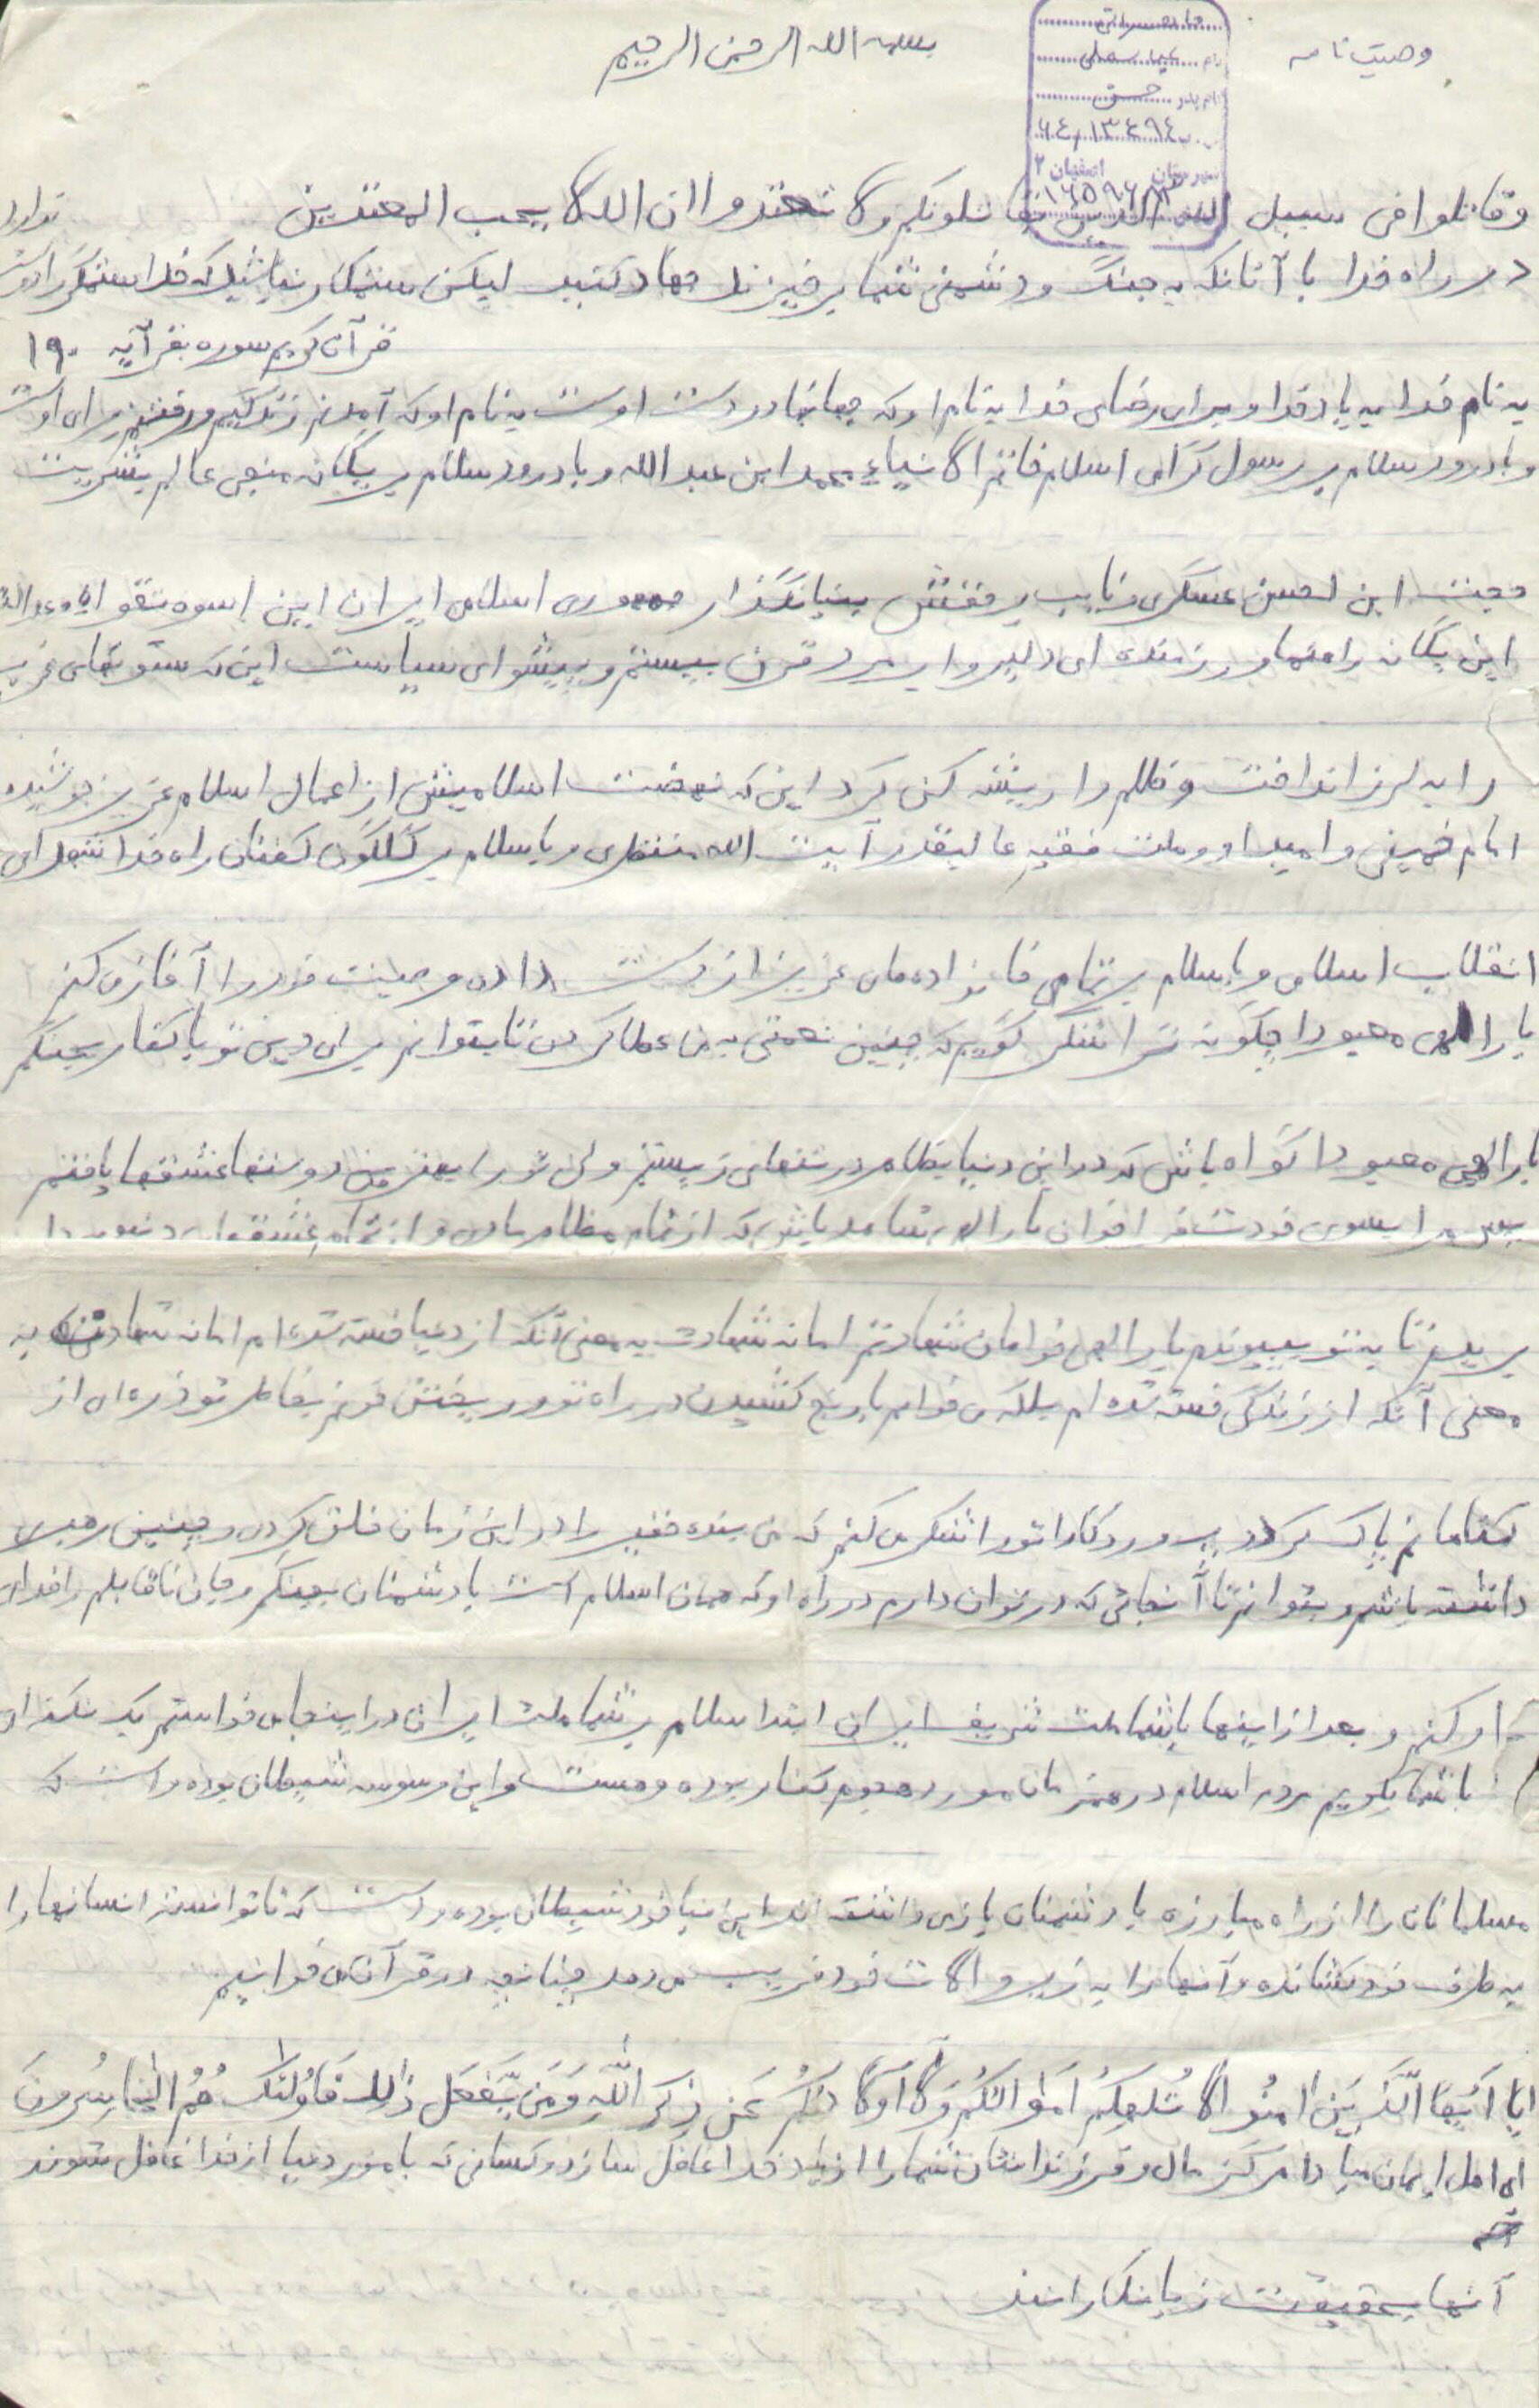 وصیت نامه
بسمه الله الرحمن الرحیم
نام عباسعلی
نام پدر حسن
شهرستان اصفهان ۲
وقاتلوا فی سبیل الله الذین یقاتلونکم ولا تعتدوا ان الله لا یحب المعتدین
در راه خدا با آنانکه به جنگ و دشمنی شما برخیزند جهاد کنید لیکن ستمکار نباشید که خدا ستمگر را دوست ندارد
قرآن کریم سوره بقره آیه ۱۹۰
به نام خدا به یاد خدا و برای رضای خدا به نام او که جهانها در دست اوست به نام او که آمدنم زندگیم و رفتنم برای اوست
و با درود سلام بر رسول گرامی اسلام خاتم الانبیاء محمد ابن عبد الله و با درود سلام بر یگانه منجی عالم بشریت
حجت ابن لحسن عسگری و نایب بر حقش بنیانگذار جمهوری اسلامی ایران این اسوه تقوا و عدالت
این یگانه راهنما و رزمنده ای دلیر و ابر مرد قرن بیستم و پیشوای سیاست این که ستونهای غرب
را به لرز انداخت و ظلم را ریشه کن کرد این که نهضت اسلامیش از اعمال اسلام عزیز جوشیده
امام خمینی و امید او و ملت فقیه عالیقدر آیت الله منتظری و با سلام بر گلگون کفنان راه خدا شهدای
انقلاب اسلامی و با سلام بر تمامی خانواده های عزیز از دست داده وصیت خود را آغاز می کنم
بارالهی معبودا چگونه ترا شکر گویم که چنین نعمتی به من عطا کردی تا بتوانم برای دین تو با کفار بجنگم
بارالهی معبودا گواه باش که در این دنیا بظاهر در تنهای زیستم ولی تو را بهترین دوستها عشقها یافتم
پس مرا بسوی خودت فرا خوان بارالهی شاهد باش که از تمام مظاهر مادی و از تمام عشقها
بریدم تا به تو بپیوندم بارالهی خواهان شهادتم اما نه شهادت به معنی آنکه از دنیا خسته شده ام اما نه شهادت به
معنی آنکه از زندگی خسته شده ام بلکه می خواهم با رنج کشیدن در راه تو و ریختن خونم بخاطر تو ذره ای از
گناهانم پاک گردد پروردگارا تو را شکر می کنم که من بنده حقیر را در این زمان خلق کردی و چنین رهبری
داشته باشم و بتوانم تا آنجائی که در توان دارم در راه او که همان اسلام است با دشمنان بجنگم و جان ناقابلم را فدای
او کنم و بعد از اینها با شما ملت شریف ایران ابتدا سلام بر شما ملت ایران در اینجا می خواستم یک نکته ای
با شما بگویم مردم اسلام در هر زمان مورد هجوم کفار بوده و هست و این وسوسه شیطان بوده و است که
مسلمانان را از راه مبارزه با دشمنان بازمی داشته اند این نیز خود شیطان بوده و است که تا توانسته انسانها را
به طرف خود کشانده و آنها را به زیور آلات خود فریب می دهد چنانچه در قرآن می خوانیم
یا اَیُّها الَّذینَ امنُوا لا تُلهِکُم اَموالُکُم وَلا اَولادُکُم عَن ذِکرِ اللَّهِ وَمَن یَفعَل ذلِکَ فَاُولئِکَ هُمُ الخاسِرُونَ
ای اهل ایمان مبادا هرگز مال و فرزندانتان شما را از یاد خدا غافل سازد و کسانی که بامور دنیا از خدا غافل شوند
آنها بحقیقت زیانکارانند